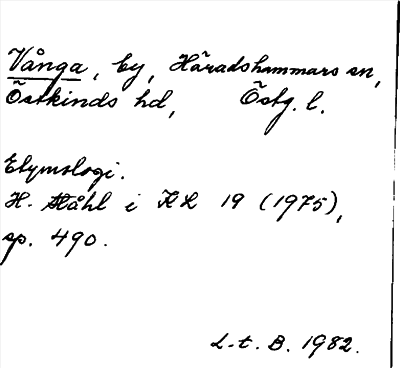 Vånga, by, Häradshammars sn,
Östkinds hd, Östg. l.
Etymologi.
H. Ståhl i KL 19 (1975),
sp. 490.
L.t. B. 1982.